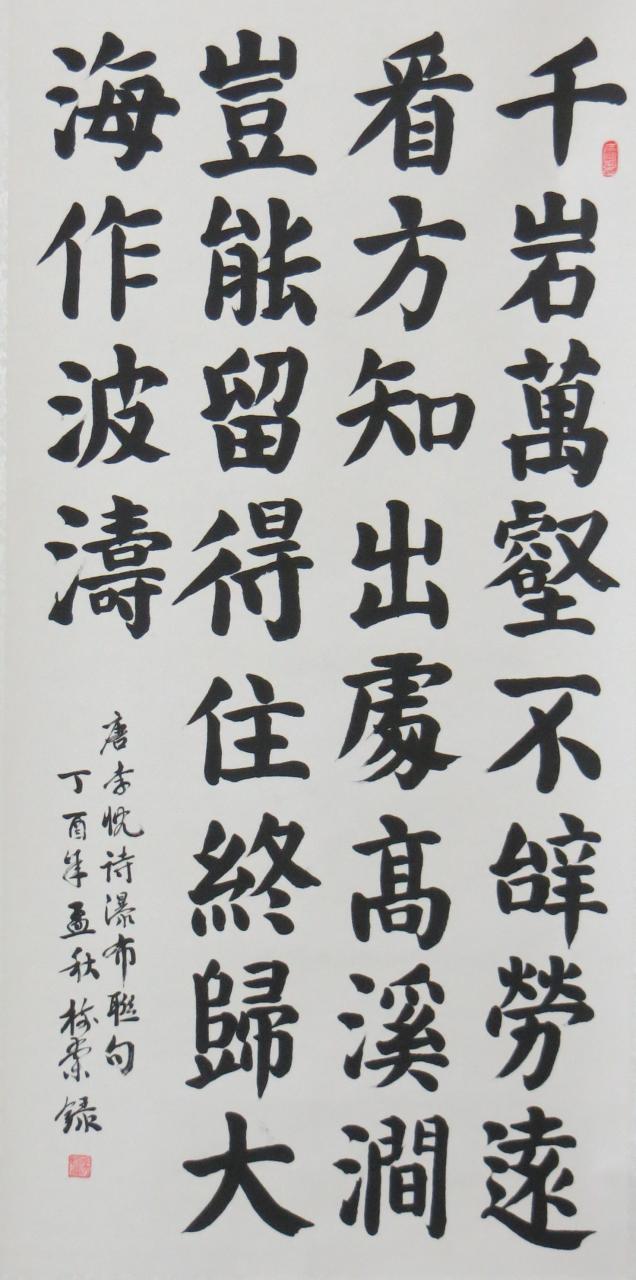 千岩萬壑不辝勞遠
看方知出處髙溪澗
豈能留得住終歸大
海作波濤
唐李忱诗瀑布聯句
丁酉年孟秋 録